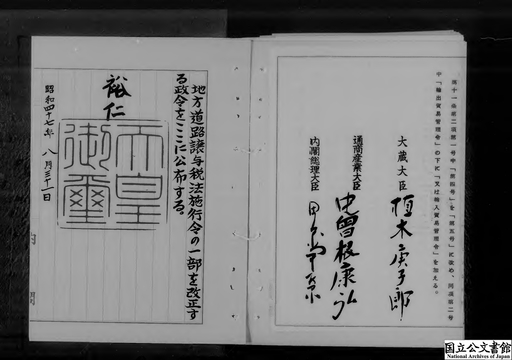 第十一条第二項第一号中「第四号」を「第五号」に改め、同項第二号
中「輸出貿易管理令」の下に「又は輸入貿易管理令」を加える。
大蔵大臣 植木庚子郎
通商産業大臣 中曽根康弘
内閣総理大臣 田中角榮
地方道路譲与税法施行令の一部を改正す
る政令をここに公布する。
裕仁
天皇
御璽
昭和四十七年 八月三十一日
内
閣
国立公文書館
National Archives of Japan